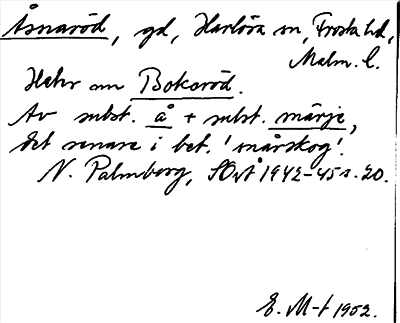 Åsnaröd, gd, Harlösa sn, Frosta hd,
Malm. l.
Hette em Bokeröd.
Av subst. å + subst. märje,
det senare i bet. 'snårskog'.
N. Palmborg, SOÅ 1942-45 s. 20.
E. M-t 1952.